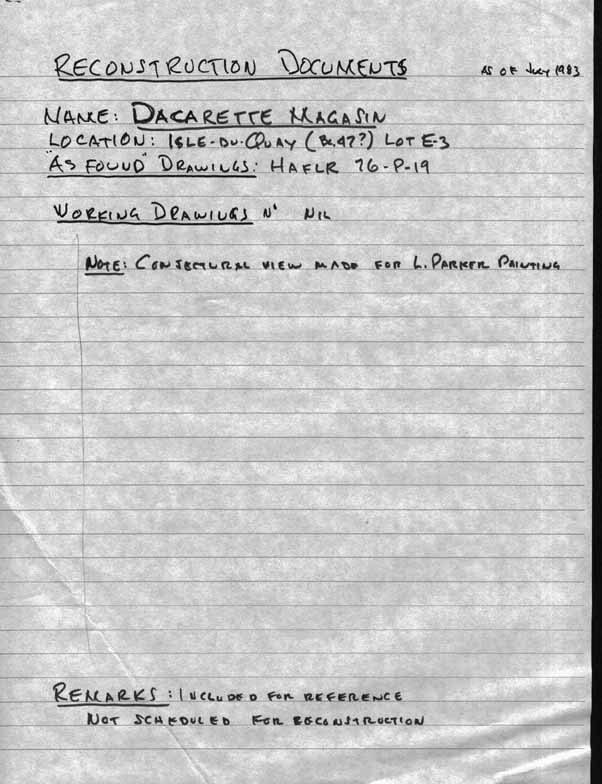 RECONSTRUCTION DOCUMENTS AS OF JULY 1983
NAME: DACARETTE MAGASIN
LOCATION: ISLE-DU-QUAY (BL.47?) LOT E-3
"AS FOUND" DRAWINGS: HAFLR 76-P-19
WORKING DRAWINGS Nº NIL
NOTE: CONJECTURAL VIEW MADE FOR L. PARKER PAINTING
REMARKS: INCLUDED FOR REFERENCE
NOT SCHEDULED FOR RECONSTRUCTION